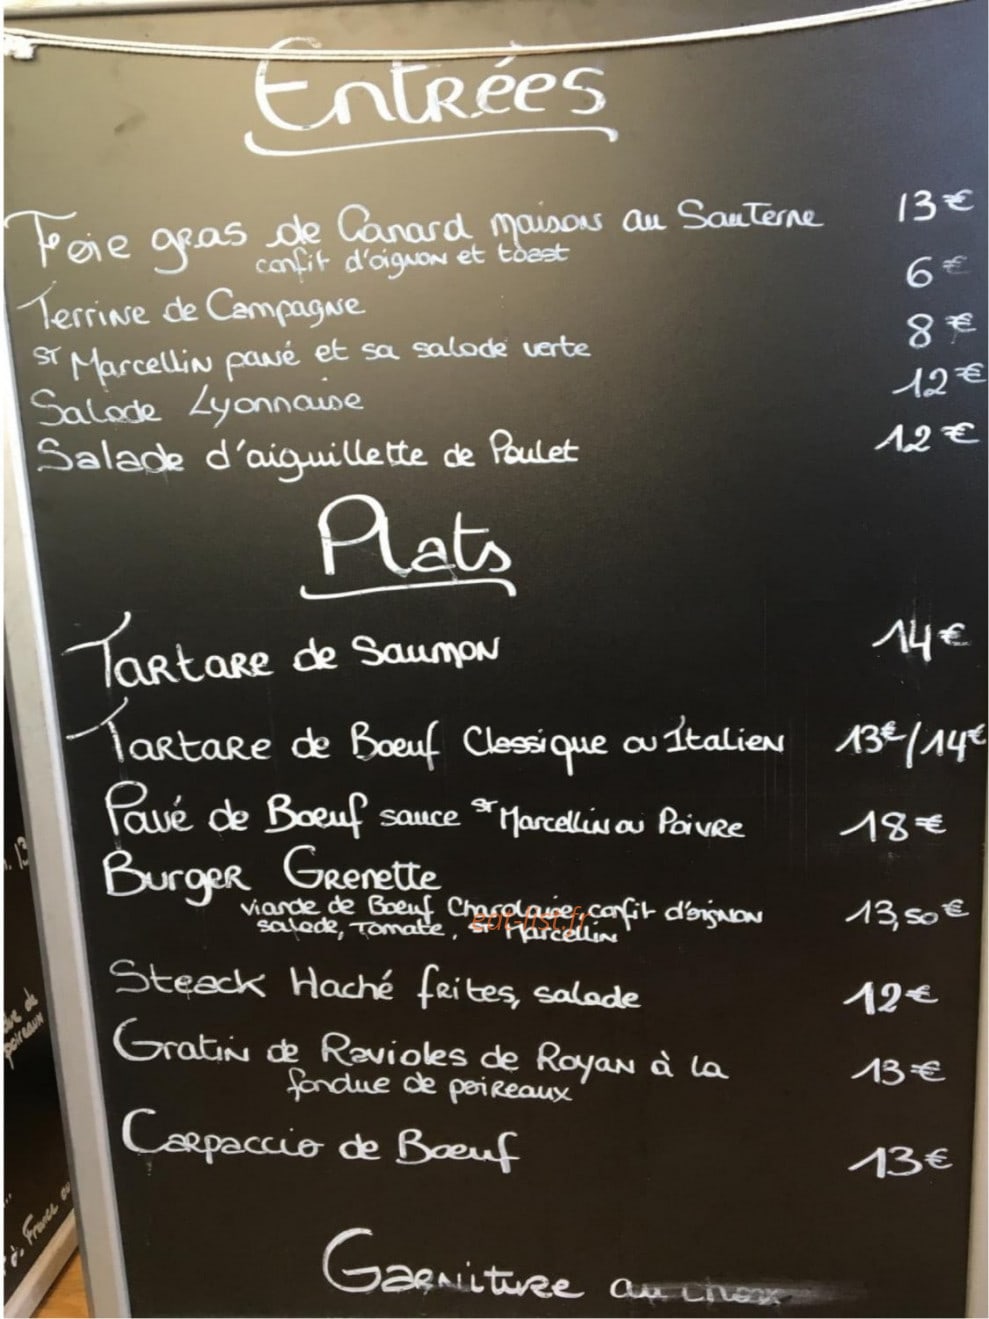 Entrées
Foie gras de Canard maison au Sauterne 13€
confit d'oignon et toast
Terrine de Campagne 6€
St Marcellin pané et sa salade verte 8€
Salade Lyonnaise 12€
Salade d'aiguillette de Poulet 12€
Plats
Tartare de Saumon 14€
Tartare de Boeuf Classique ou Italien 13€/14€
Pavé de Boeuf sauce St Marcellin ou Poivre 18€
Burger Grenette
viande de Boeuf Charolaise, confit d'oignon 13,50€
salade, Tomate, St Marcellin
eat-list.fr
Steack Haché frites, salade 12€
Gratin de Ravioles de Royan à la 13€
fondue de poireaux
Carpaccio de Boeuf 13€
Garniture au choix
poireaux
France